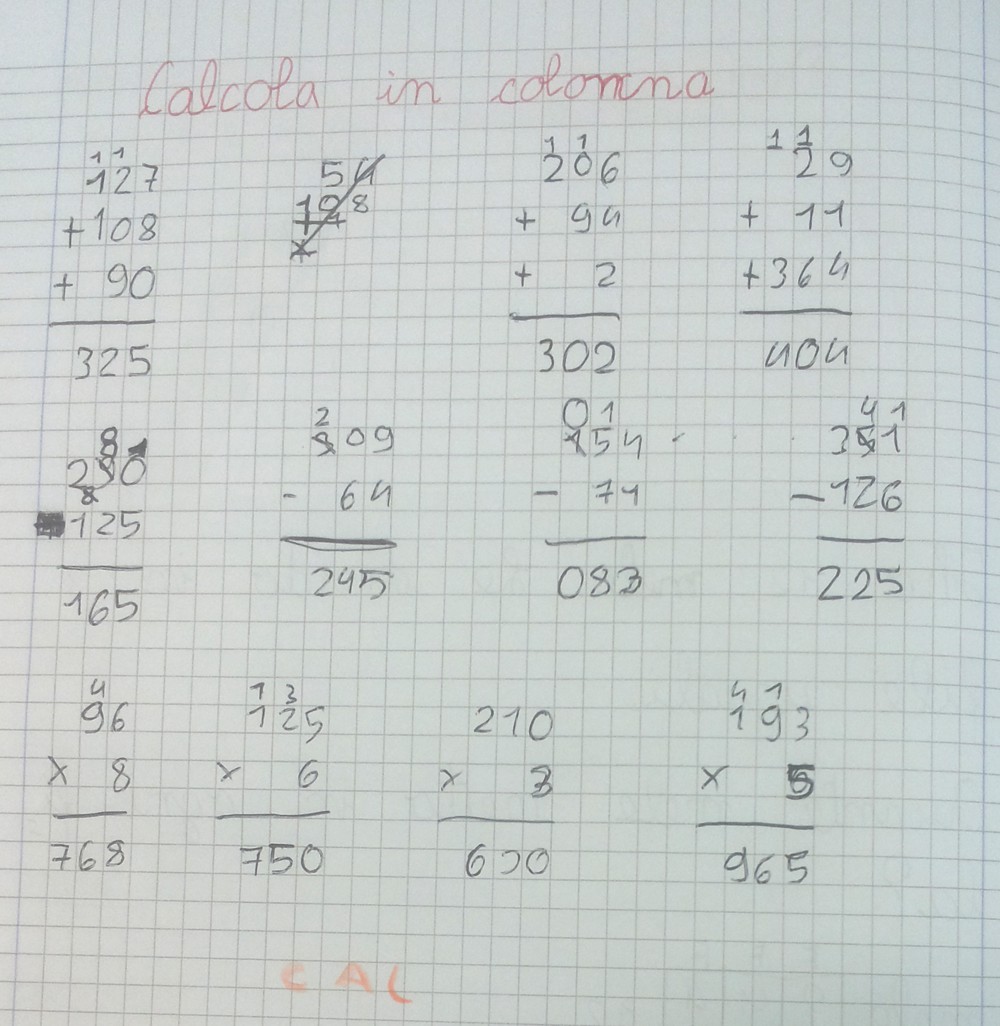 Calcola in colonna
1 1 1 1 1 1
127 54 206 29
+108 198 + 94 + 11
+ 90 x + 2 +364
325 302 404
8 2 0 1 4 1
290 309 154 351
125 - 64 - 71 -126
165 245 083 225
4 1 3 4 1
96 125 210 193
x 8 x 6 x 3 x 5
768 750 630 965
CAL